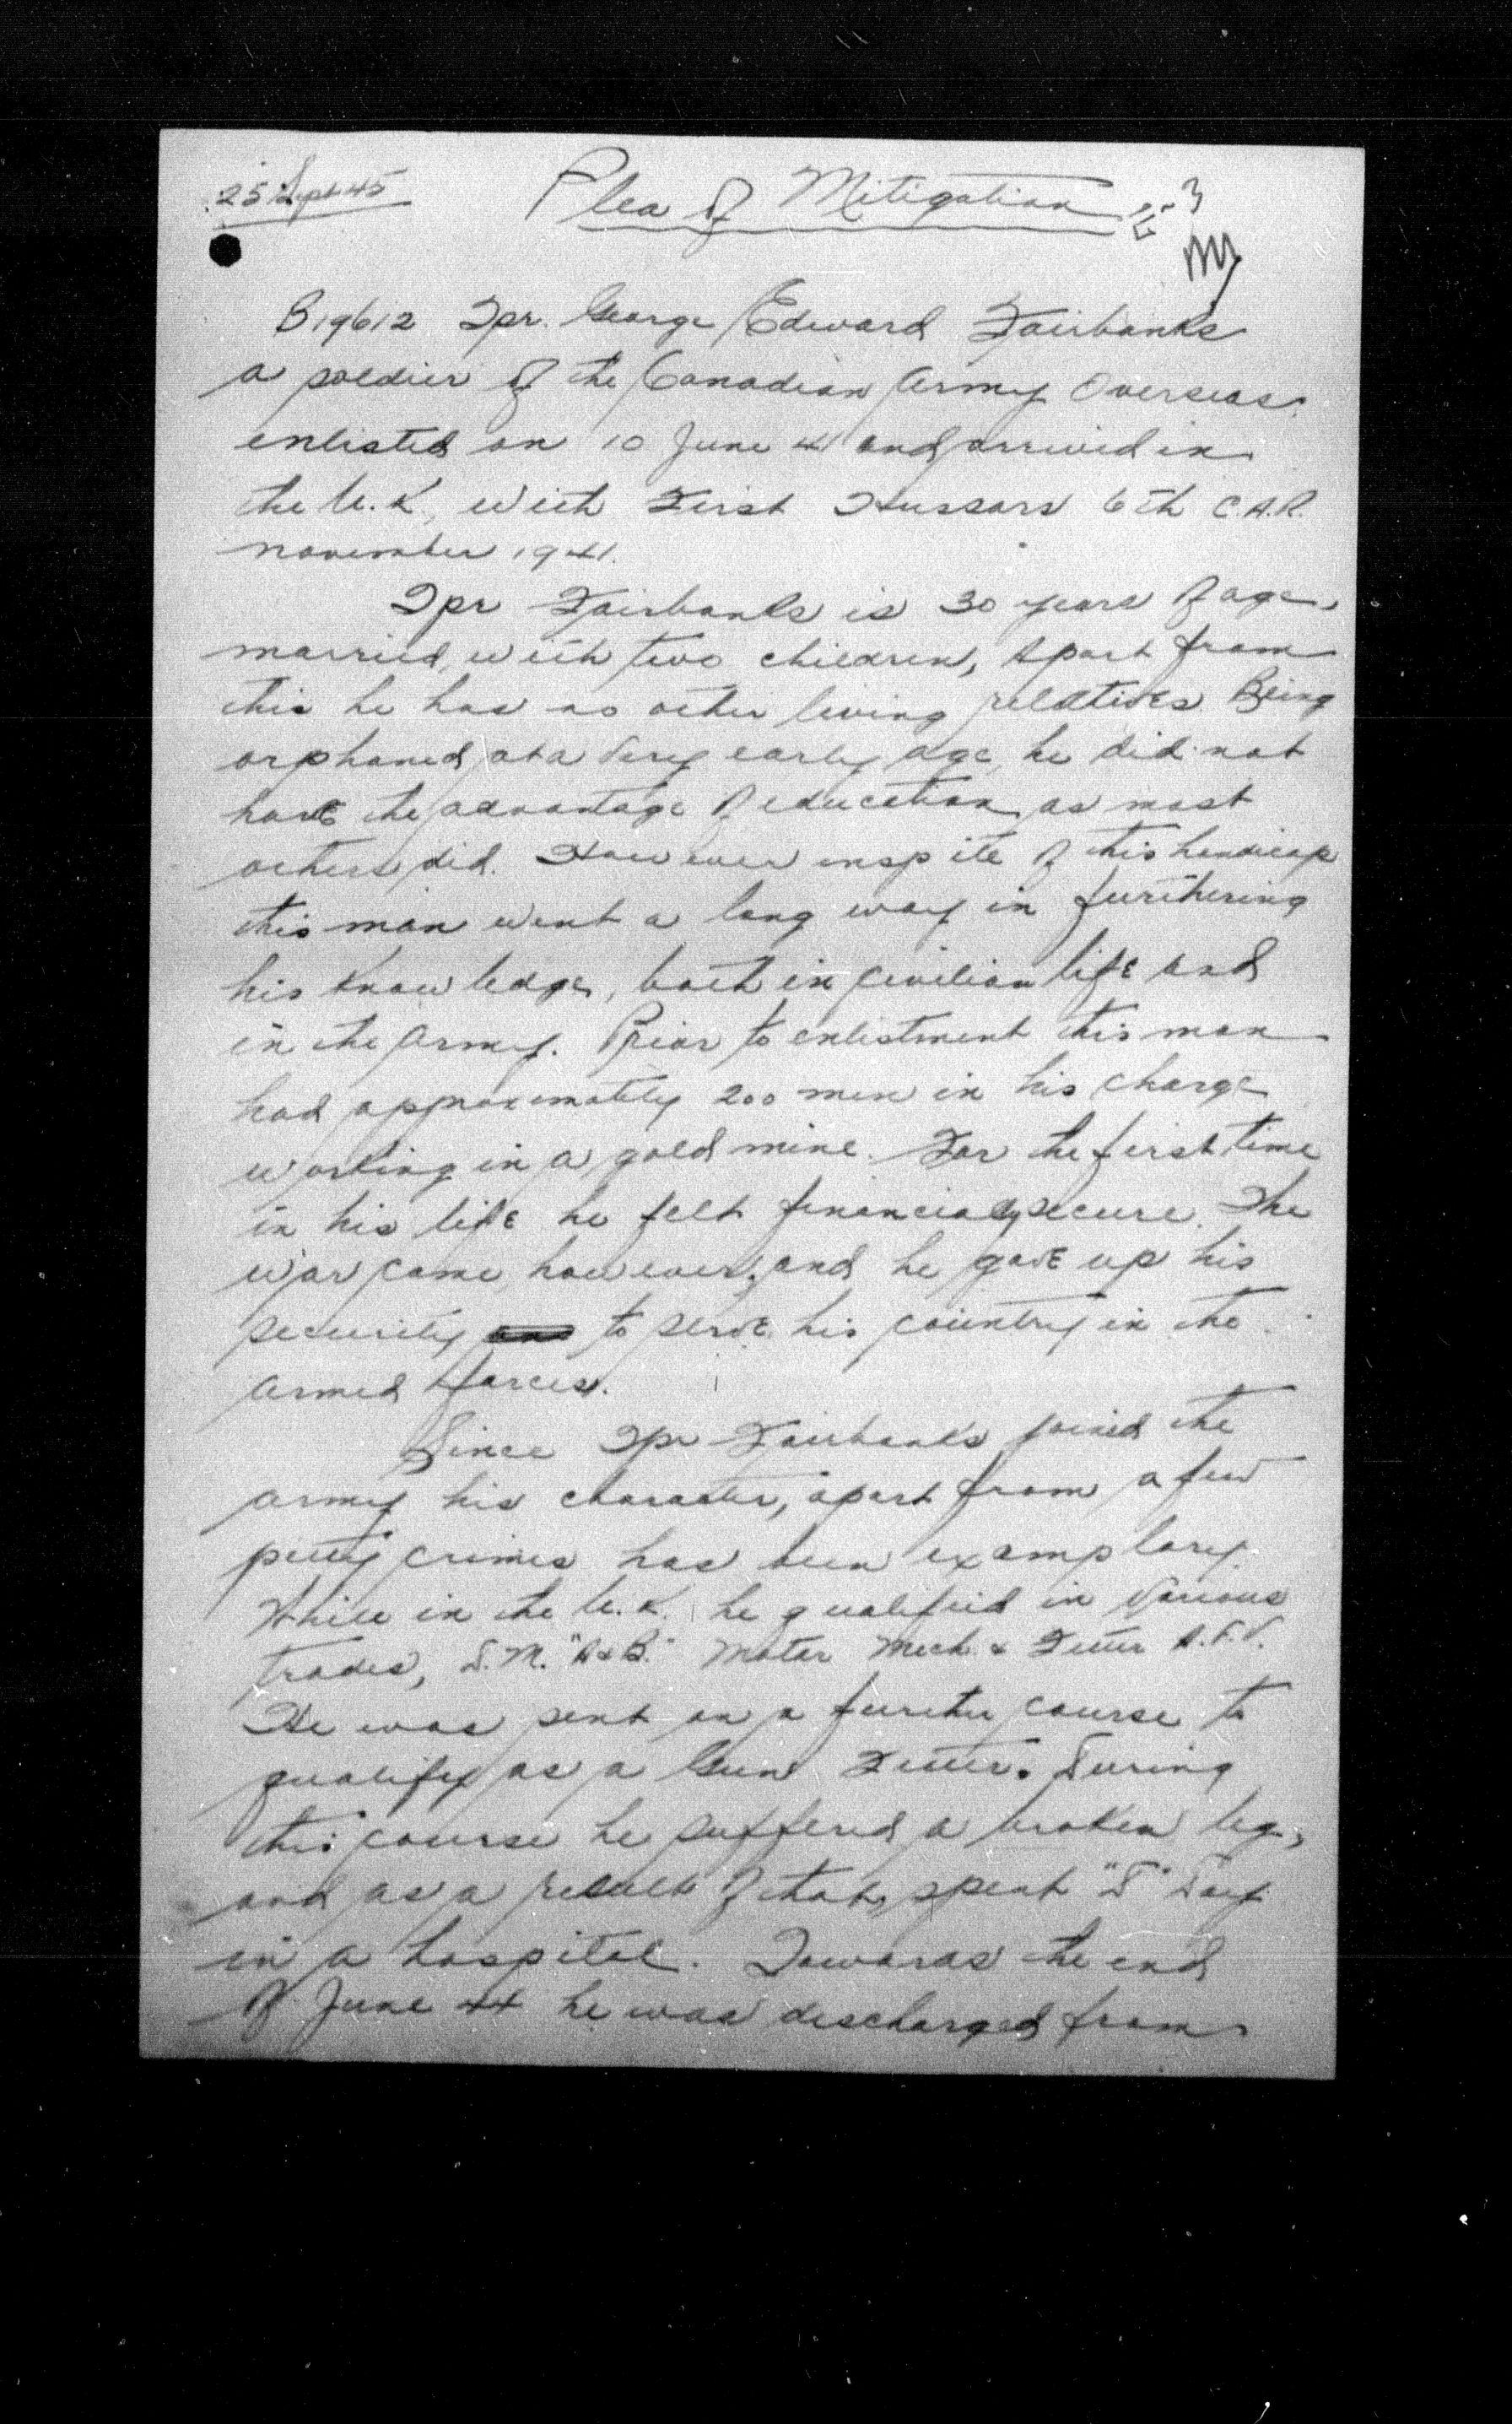 25 Sept 45
Plea of Mitigation
B19612 Tpr. George Edward Fairbanks
a soldier of the Canadian Army Overseas.
enlisted on 10 June 41 and arrived in
the U.K. with First Hussars 6th C.A.R.
november 1941.
Tpr Fairbanks is 30 years of age,
married, with two children, Apart from
this he has no other living relatives Being
orphaned at a very early age, he did not
have the advantage of education as most
others did. However inspite of this handicap
this man went a long way in furthering
his knowledge, both in civilian life and
in the army. Prior to enlistment this man
had approximately 200 men in his charge
working in a gold mine. For the first time
in his life he felt financialy secure. The
war came, however, and he gave up his
security to serve his country in the
armed forces.
Since Tpr Fairbanks joined the
army his character, apart from a few
petty crimes has been examplary.
While in the U.K. he qualified in various
trades, D.M. "A & B." Motor Mech. & Fitter A.F.V.
He was sent on a further course to
qualify as a Gun Fitter. During
this course he suffered a broken leg,
and as a result of that, spent "D" Day
in a hospital. Towards the end
of June 44 he was discharged from